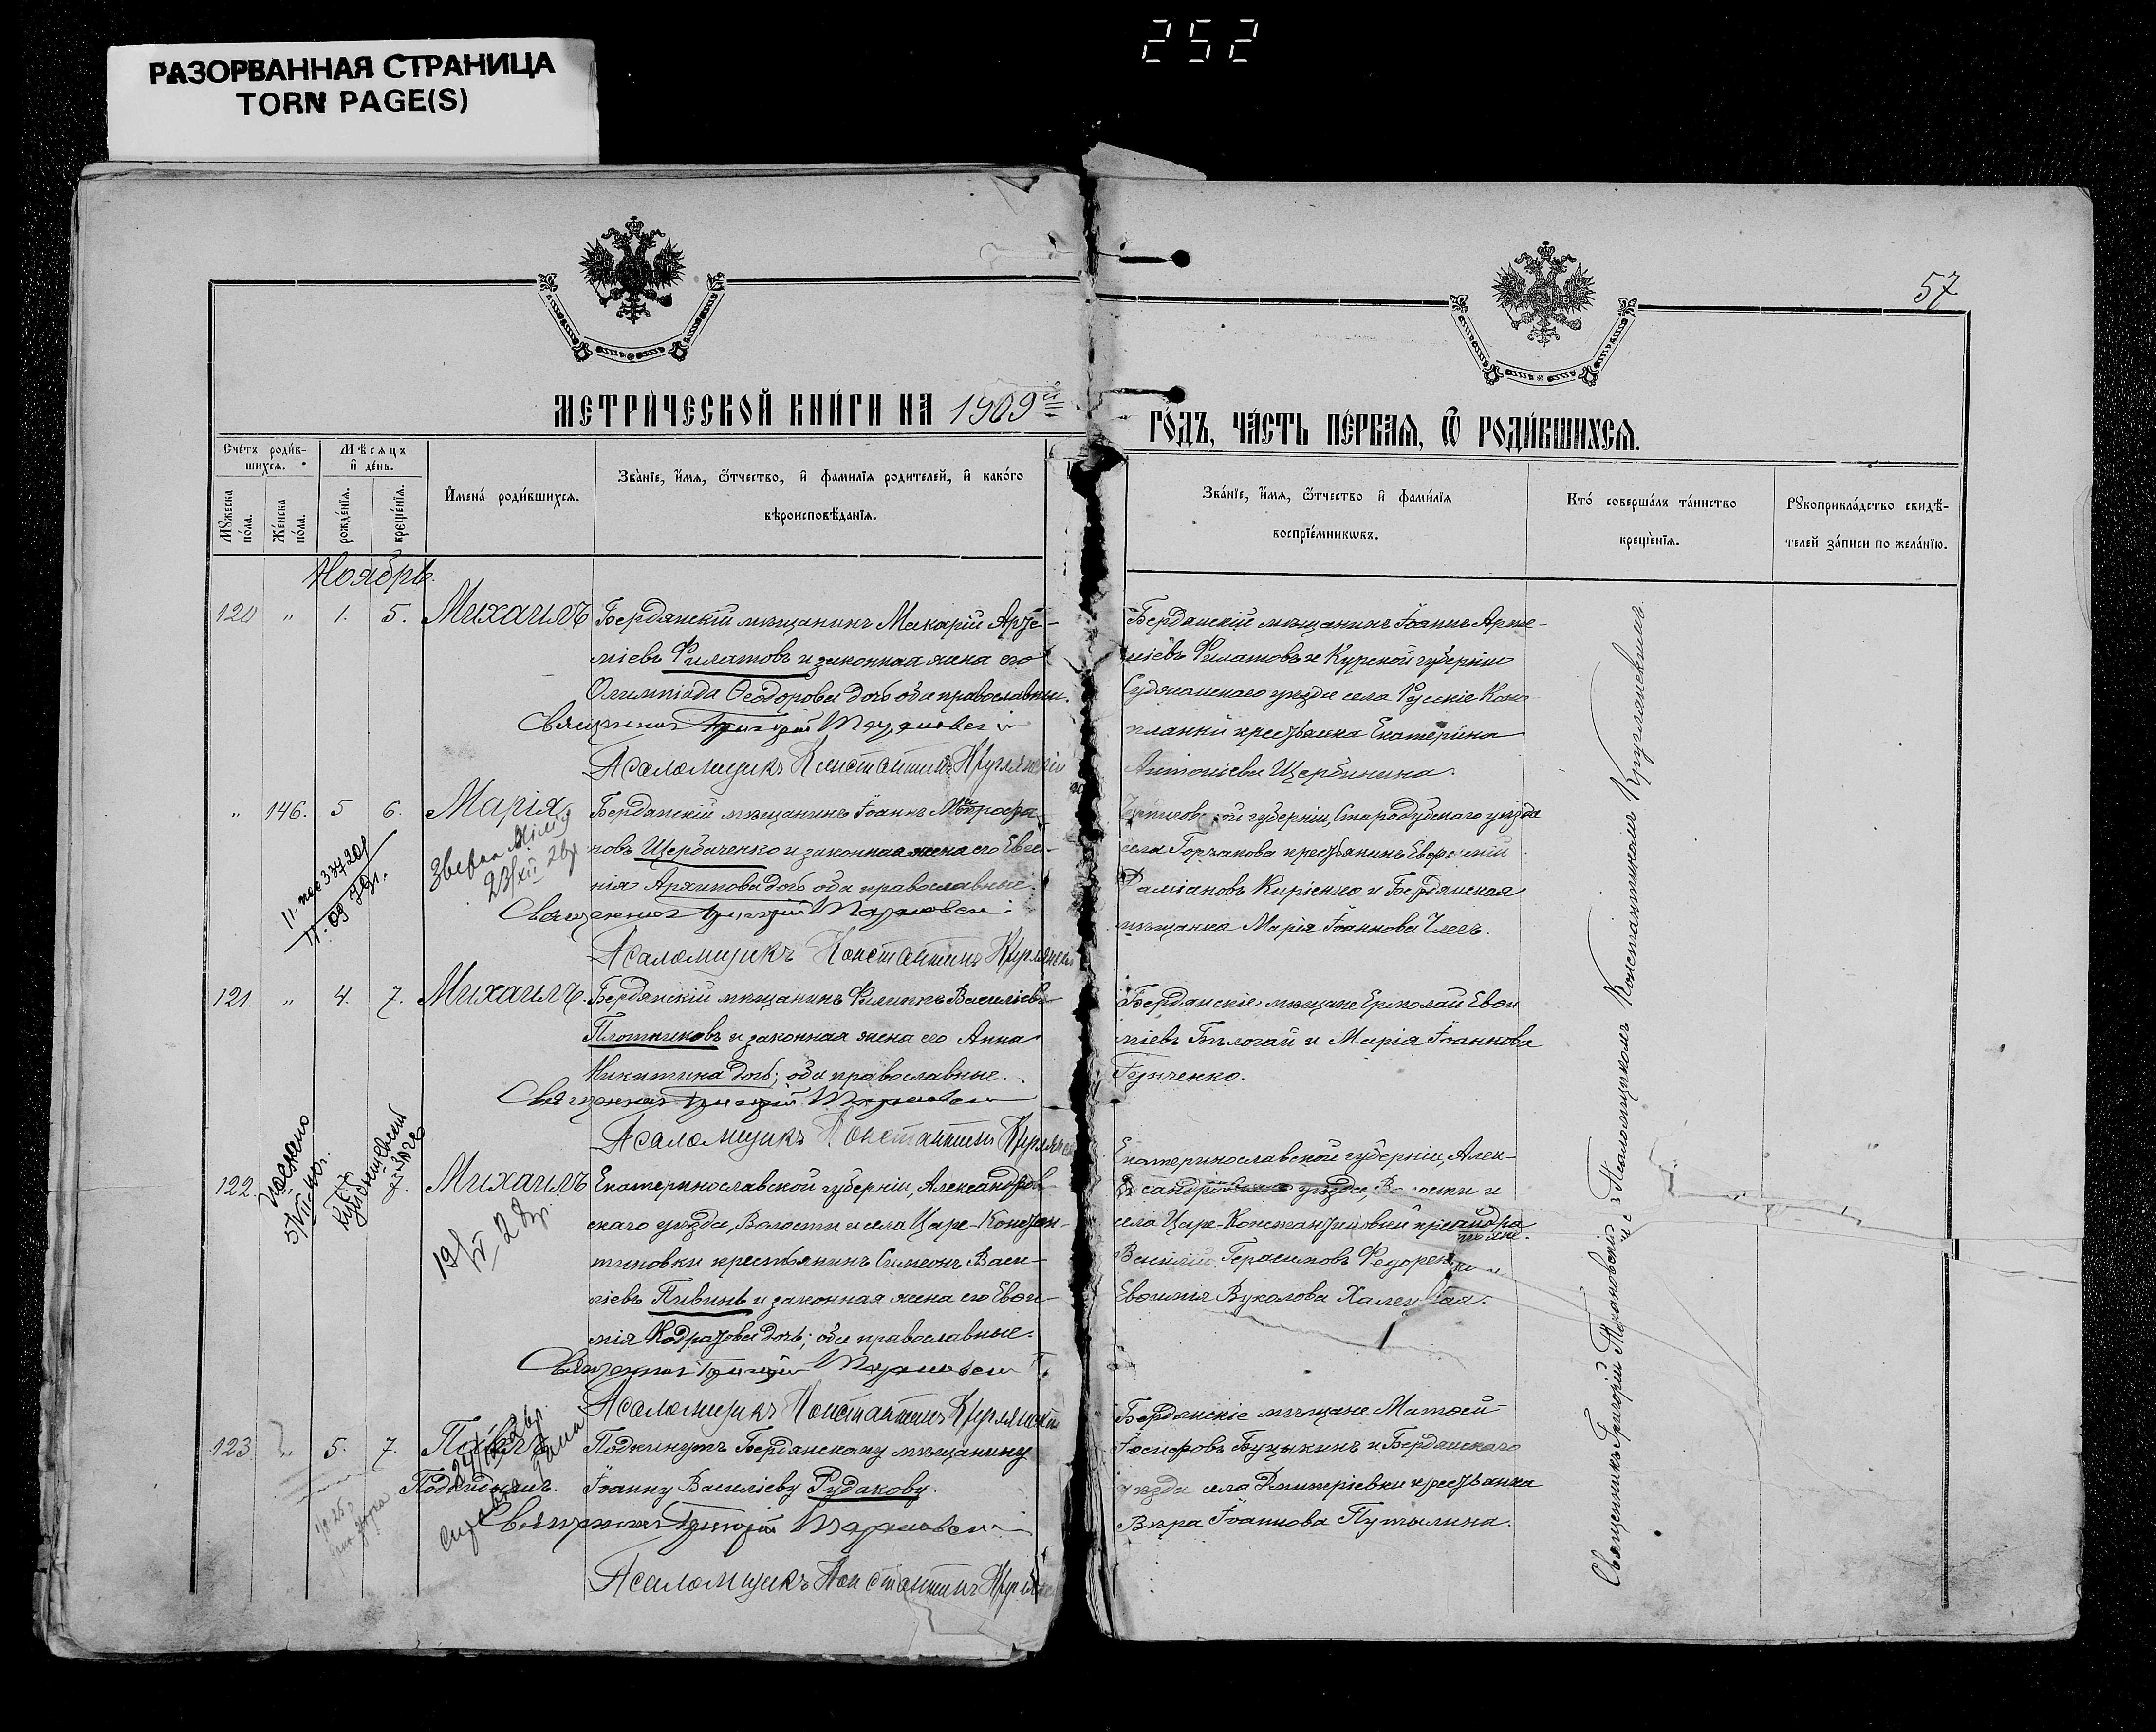 252
РАЗОРВАННАЯ СТРАНИЦА
TORN PAGE(S)
57
МЕТРИ́ЧЕСКОЙ КНИ́ГИ НА 1909й
ГО́ДЪ, ЧА́СТЬ ПЕ́РВАЯ, Ѿ РОДИ́ВШИХСЯ.
Сче́тъ роди́в-
шихся.
Мѣсяцъ
и҆ де́нь.
Мꙋжеска по́ла.
Же́нска по́ла.
рожде́нїя.
креще́нїя.
И҆мена̀ роди́вшихся.
Зва́нїе, и҆́мя, ѻ҆́тчество, и҆ фамилїя родителей, и҆ како́го
вѣроисповѣ́данїя.
Зва́нїе, и҆́мя, ѻ҆́тчество и҆ фами́лїя
воспрїе́мникѡвъ.
Кто́ соверша́лъ та́инство
креще́нїя.
Рꙋкоприкла́дство свидѣ́-
телей за́писи по жела́нїю.
Ноябрь.
120 " 1. 5. Михаилъ
Бердянскій мѣщанинъ Макарій Арте-
міевъ Филатовъ и законная жена его
Олимпіада Ѳеодорова дочь оба православные.
Священникъ Григорій Тарановскій
Псаломщикъ Константинъ Круглянскій
Бердянскій мѣщанинъ Іоаннъ Арте-
міевъ Филатовъ и Курской губерніи
Суджанскаго уѣзда села Русскіе Коно-
плянки крестьянка Екатерина
Антоніева Щербинина.
" 146. 5 6. Марія
Бердянскій мѣщанинъ Іоаннъ Митрофа-
новъ Щербаченко и законная жена его Евге-
нія Архипова дочь оба православные.
Священникъ Григорій Тарановскій
Псаломщикъ Константинъ Круглянскій
Черниговской губерніи, Стародубскаго уѣзда
села Горчакова крестьянинъ
Даміановъ Киріенко и Бердянская
мѣщанка Марія Іоаннова
121. " 4. 7. Михаилъ.
Бердянскій мѣщанинъ Филиппъ Василіевъ
Плотниковъ и законная жена его Анна
Никитина дочь; оба православные.
Священникъ Григорій Тарановскій
Псаломщикъ Константинъ Круглянскій
Бердянскіе мѣщане Ермолай Евѳи-
міевъ Бѣлогай и Марія Іоаннова
122.
Михаилъ
Екатеринославской губерніи, Александров-
скаго уѣзда, Волости и села Царе-Констан-
тиновки крестьянинъ Симеонъ Васи-
ліевъ Пивинь и законная жена его Евѳи-
мія Кодратова дочь; оба православные.
Священникъ Григорій Тарановскій
Псаломщикъ Константинъ Круглянскій
Екатеринославской губерніи, Алек-
сандровскаго уѣзда, Волости и
села Царе-Константиновки
Василій Герасимовъ Федоренко и
Евѳимія Вуколова
123 " 5. 7. Павелъ
Подкидышъ.
Подкинутъ Бердянскому мѣщанину
Іоанну Василіеву Рудакову.
Священникъ Григорій Тарановскій
Псаломщикъ Константинъ Круглянскій
Бердянскіе мѣщане Матѳей
Іосифовъ Буцыкинъ и Бердянскаго
уѣзда села Димитріевки крестьянка
Вѣра Іоаннова Путылина.
Священникъ Григорій Тарановскій съ Псаломщикомъ Константиномъ Круглянскимъ.